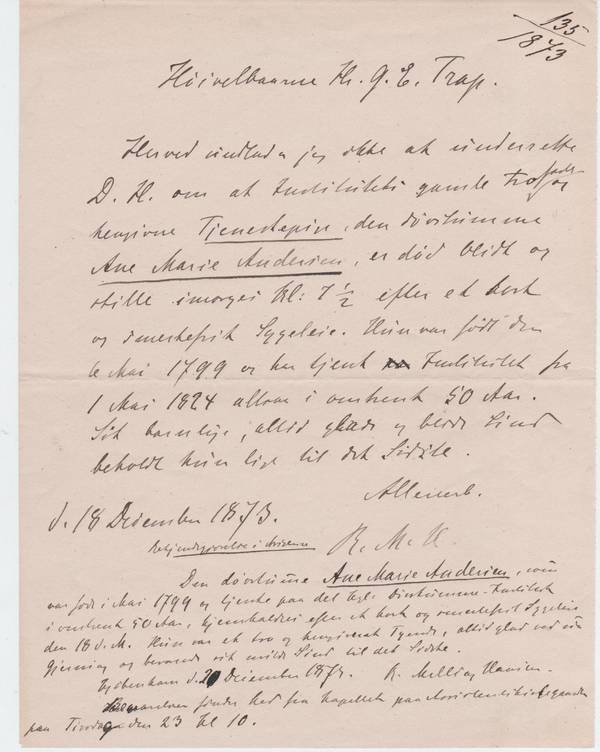 135
1873
Høivelbaarne Hr. G. E. Trap.
Herved undlader jeg ikke at underrette
D. H. om at Instituttets gamle trofaste og
hengivne Tjenestepige, den døvstumme
Ane Marie Andersen, er død blidt og
stille imorges Kl: 7 1/2 efter et kort
og smertefrit Sygeleie. Hun var født den
6 Mai 1799 og har tjent Institutet fra
1 Mai 1824 altsaa i omtrent 50 Aar.
Sit barnlige, altid glade og blide Sind
beholdt hun lige til det Sidste.
Allerærb.
d. 18 December 1873.
R. M. H.
Bekjendtgjørelse i Aviserne
Den døvstumme Ane Marie Andersen, som
var født i Mai 1799 og tjente paa det kgl. Døvstumme-Institut
i omtrent 50 Aar, hjemkaldtes efter et kort og smertefrit Sygeleie
den 18 d. M. Hun var et tro og hengivent Tyende, altid glad ved sin
Gjerning og bevarede sit milde Sind til det Sidste.
Kjøbenhavn d. 20 December 1873. R. Malling Hansen.
finder Sted fra Kapellet paa Assistentskirkegaarden
paa Tirsdag den 23 Kl 10.